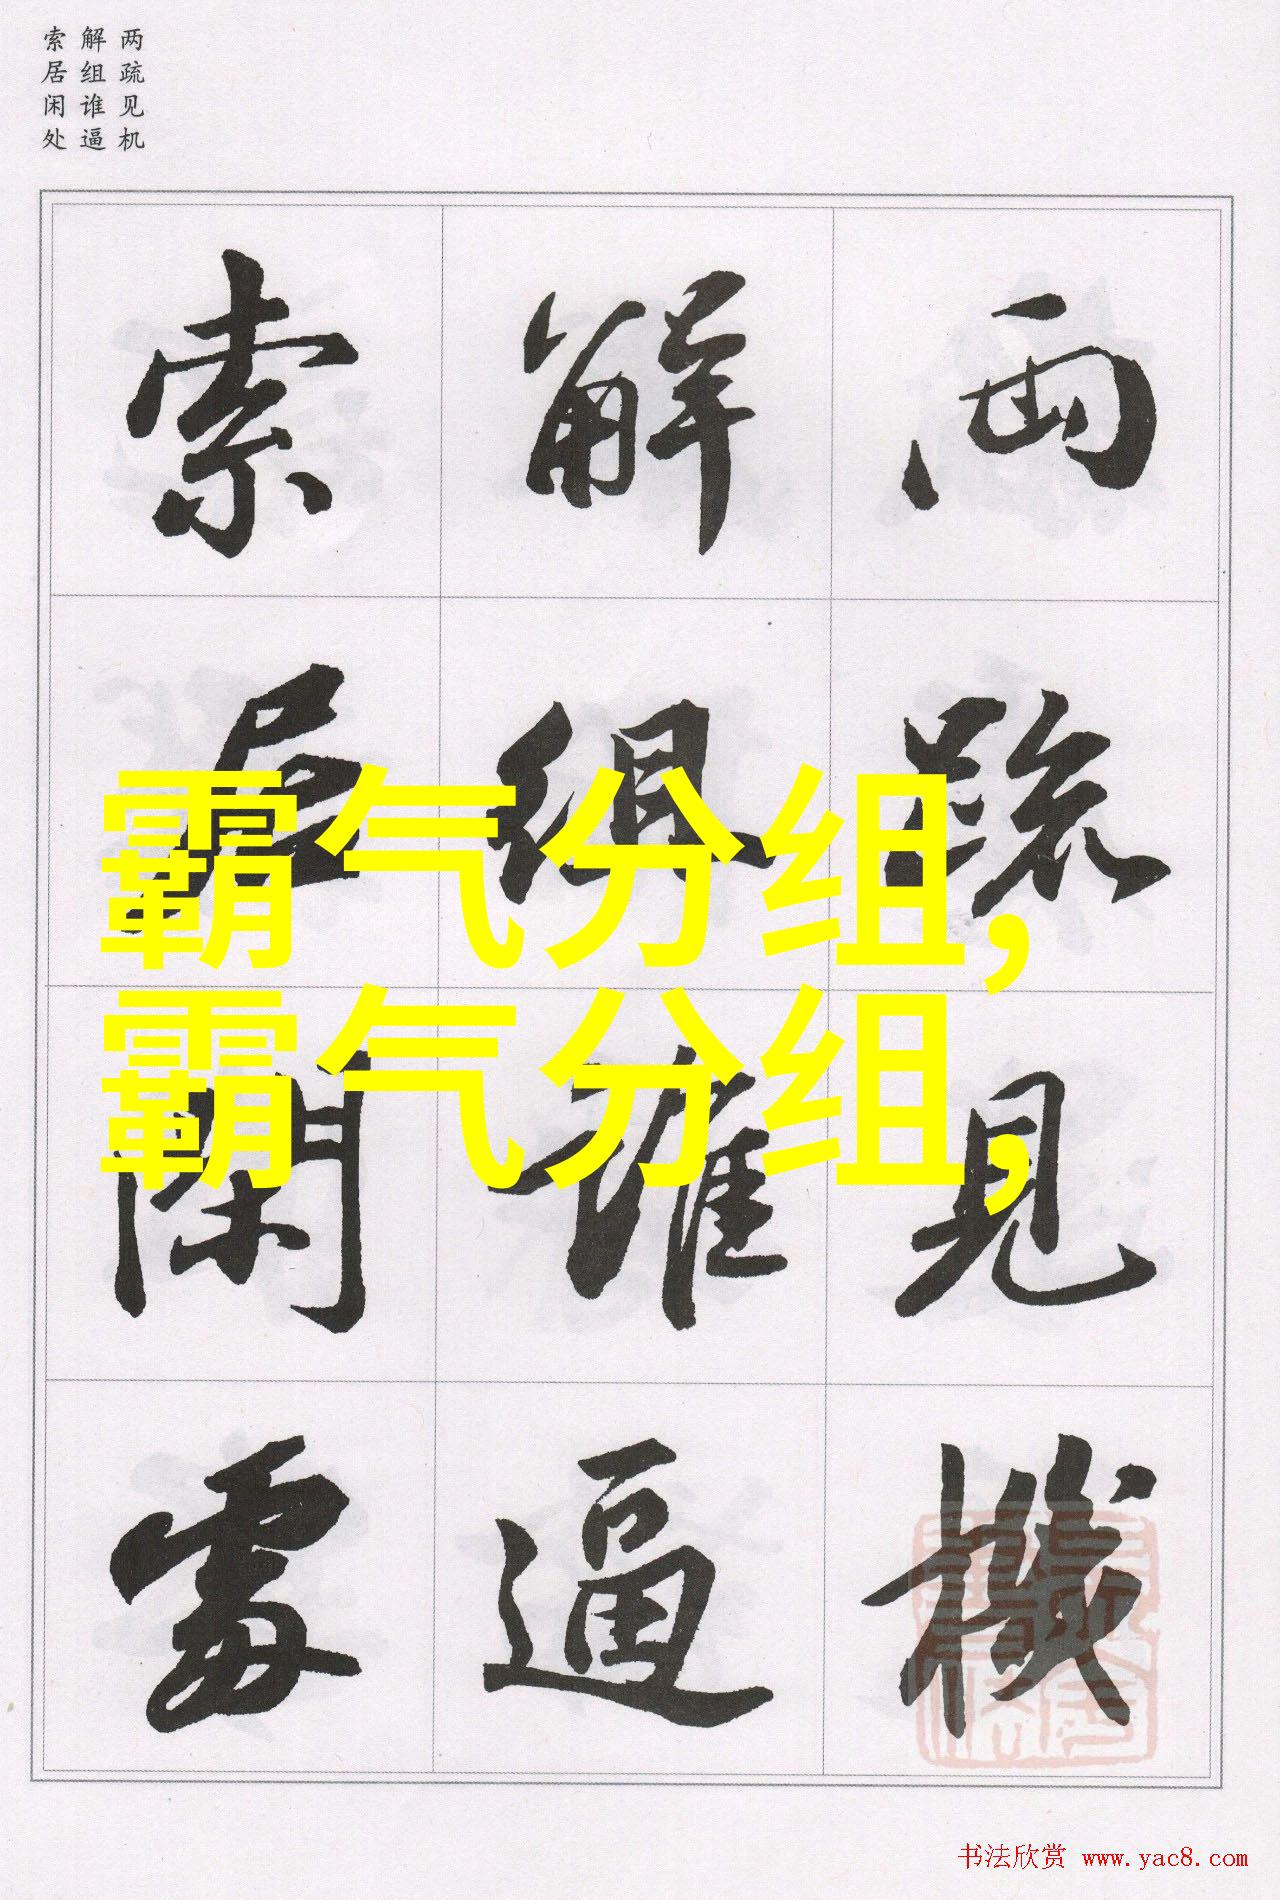 两疏见机
解组谁逼
索居闲处
兩疏見機
解組誰逼
索居閑處
霸气分组,
霸气分组,
书法欣赏 www.yac8.com